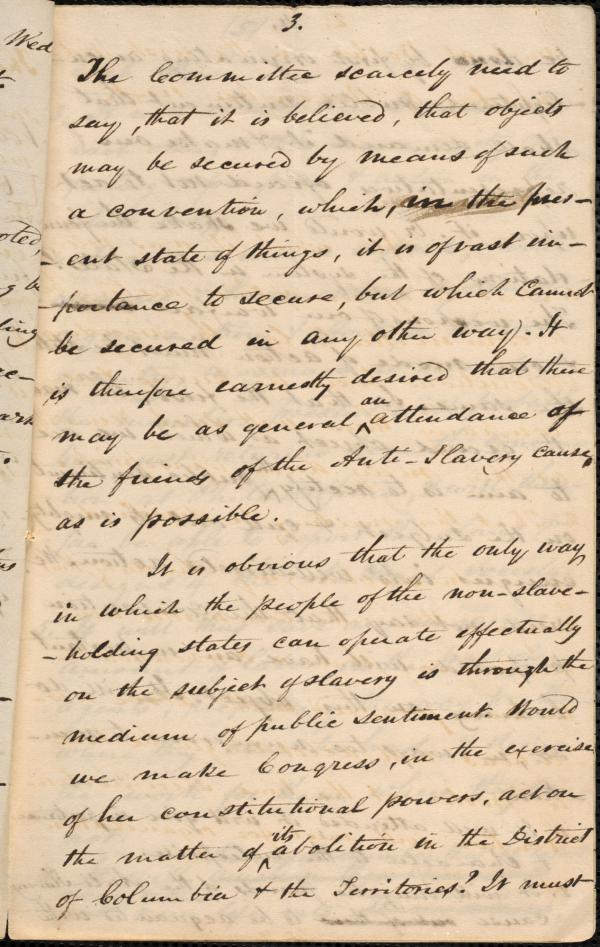 3.
The Committee scarcely need to
say, that it is believed, that objects
may be secured by means of such
a convention, which, in the pres-
-ent state of things, it is of vast im-
-portance to secure, but which cannot
be secured in any other way. It
is therefore earnestly desired that there
may be as general an attendance of
the friends of the Anti-Slavery cause,
as is possible.
It is obvious that the only way
in which the people of the non-slave-
-holding states can operate effectually
on the subject of slavery is through the
medium of public sentiment. Would
we make Congress, in the exercise
of her constitutional powers, act on
the matter of its abolition in the District
of Columbia & the Territories? It must
Wed
oted,
ling